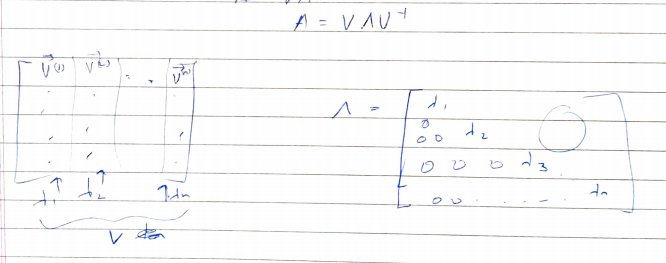 A = V Λ V⁻¹
v⃗⁽¹⁾ v⃗⁽²⁾ . . v⃗⁽ⁿ⁾
↑ ↑ ↑
λ₁ λ₂ λn
V
Λ =
λ₁
0
0 0 λ₂
0 0 0 λ₃
0 0 . . . . - . λn